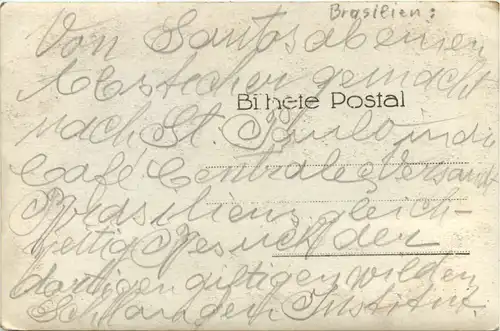 Brasilien:
Von Santos aber einen
Abstecher gemacht
Bilhete Postal
nach St. Paulo in die
Café Centrale, Versandt
Brasiliens, gleich-
zeitig Besuch der
dortigen giftigen wilden
Schlangen Institut.